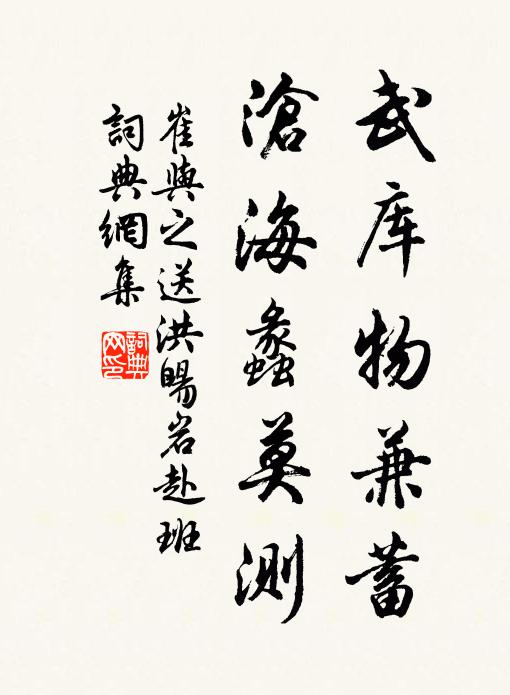 武库物兼蓄
滄海蠡莫測
崔與之送洪賜岩赴班
詞典網集
詞典网印